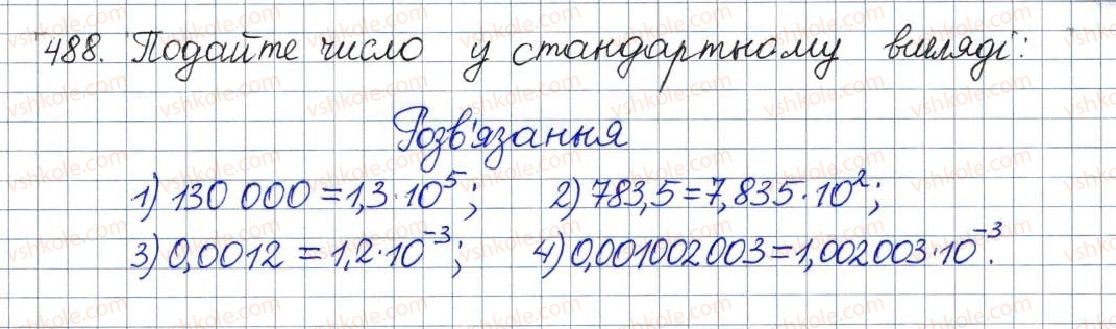 488. Подайте число у стандартному вигляді:
Розв'язання
1) 130 000 = 1,3·10⁵; 2) 783,5 = 7,835·10²;
3) 0,0012 = 1,2·10⁻³; 4) 0,001002003 = 1,002003·10⁻³.